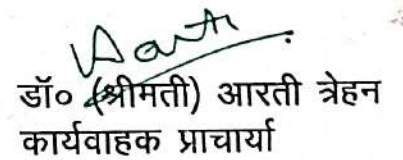 Aarti
डॉ० (श्रीमती) आरती त्रेहन
कार्यवाहक प्राचार्या